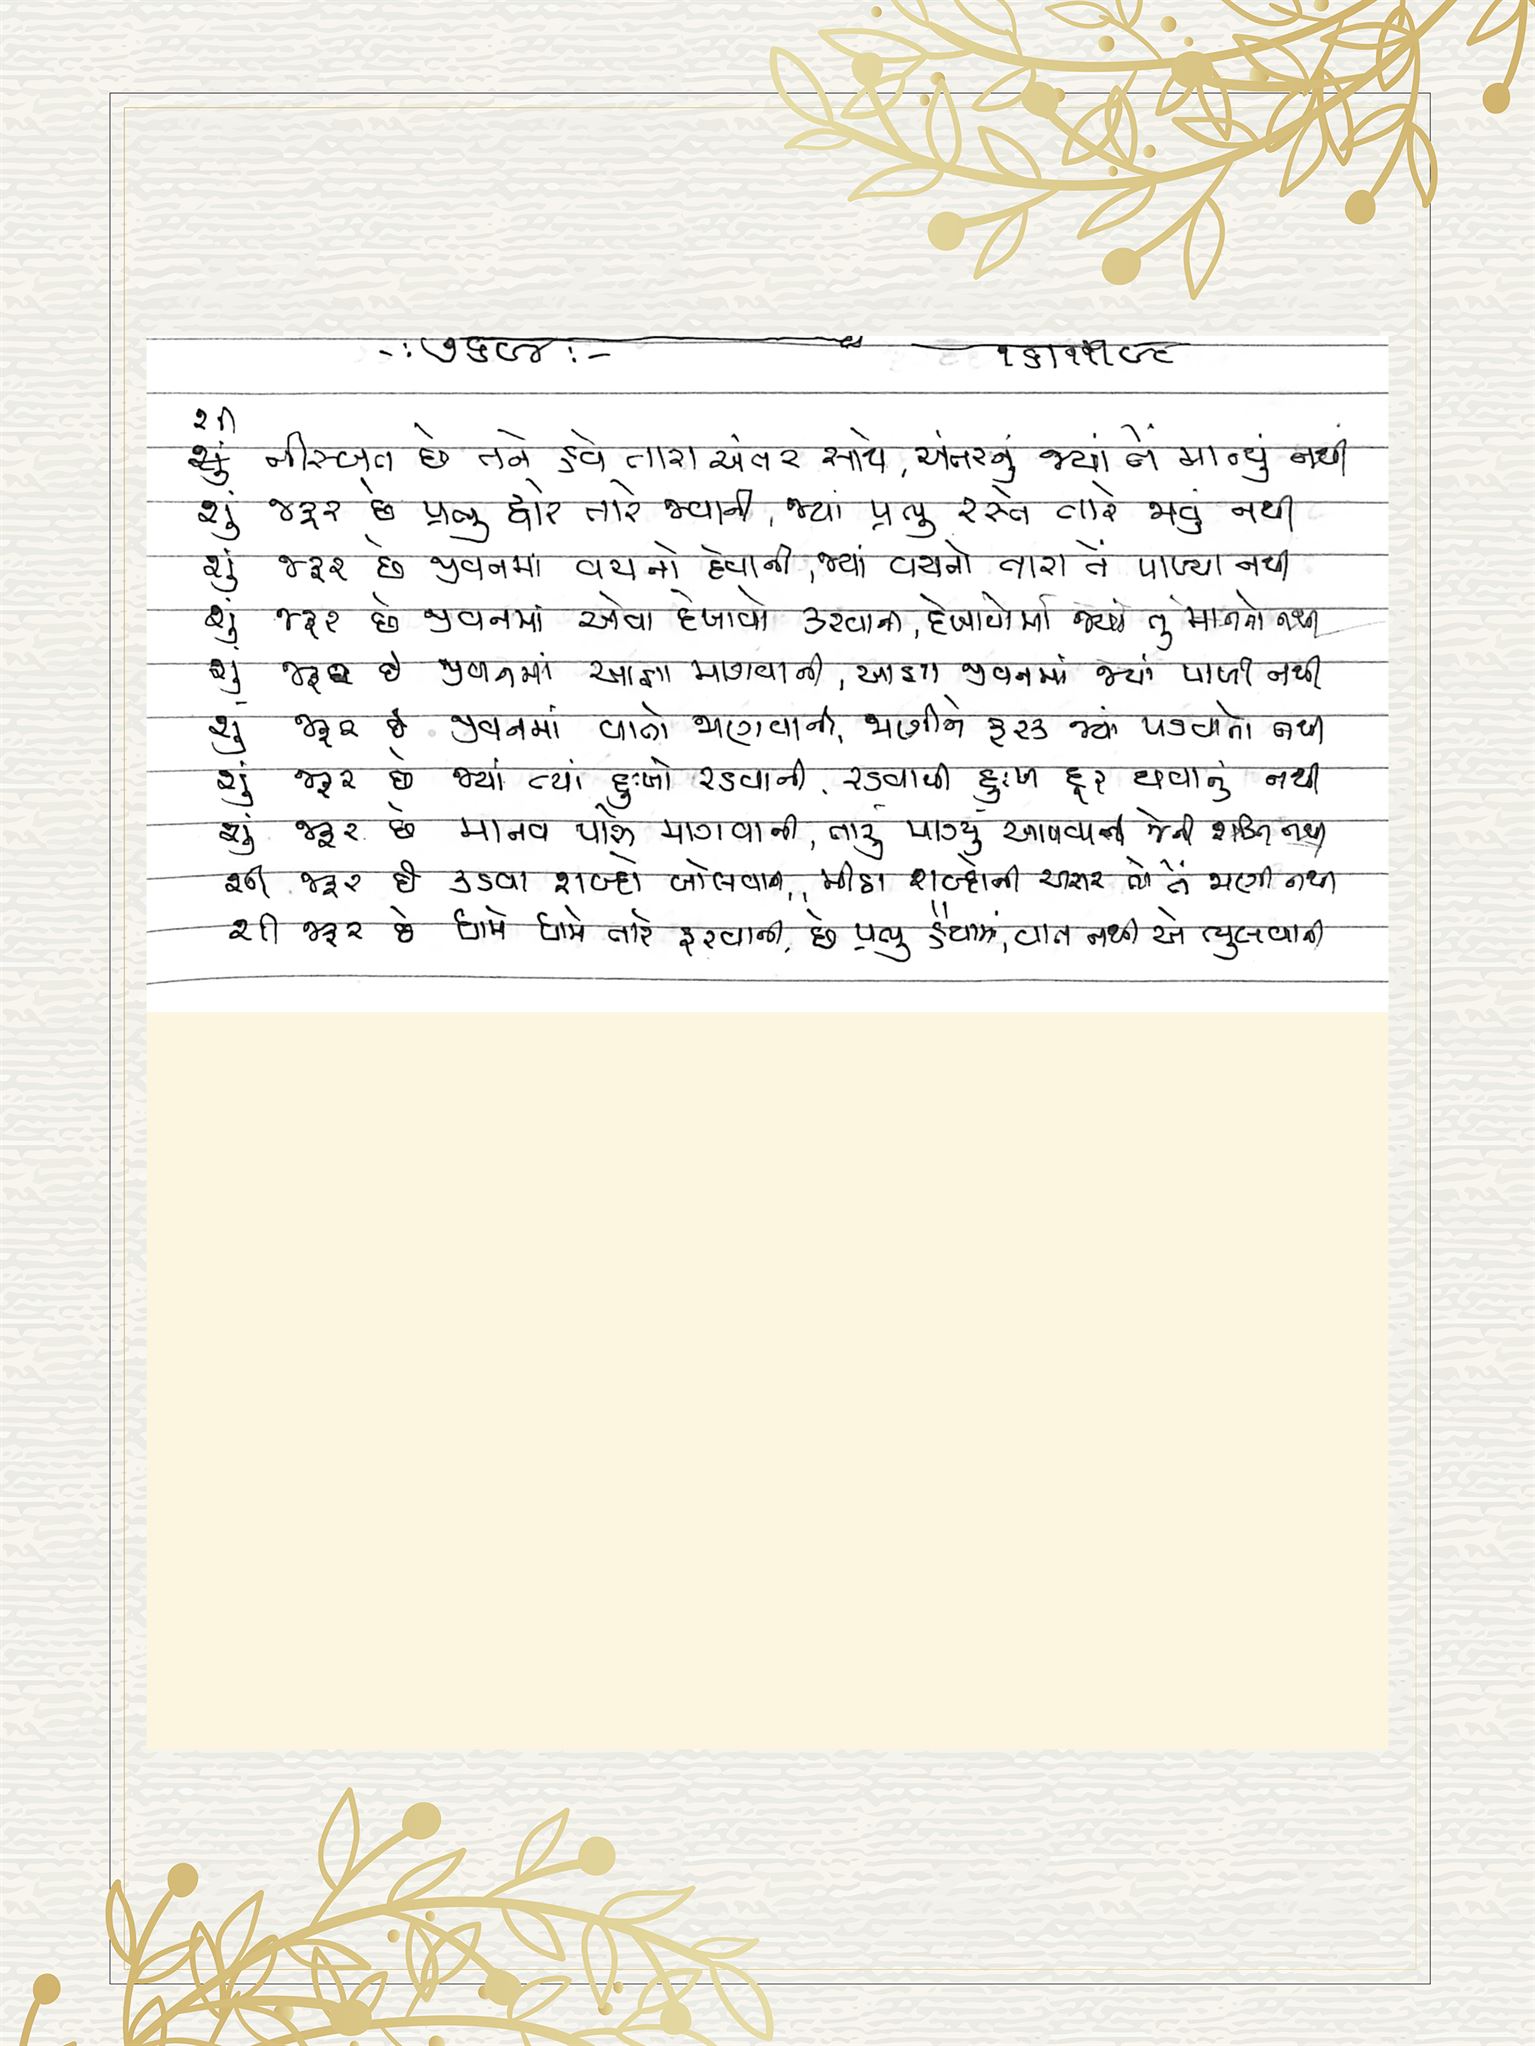 -: ૭૬૯૪ :- ૧૬/૧૧/૯૮
શી
નીસ્બત છે તને હવે તારા અંતર સાથે, અંતરનું જ્યાં તેં માન્યું નથી
શું જરૂર છે પ્રભુ દ્વારે તારે જવાની, જ્યાં પ્રભુ રસ્તે તારે જાવું નથી
શું જરૂર છે જીવનમાં વચનો દેવાની, જ્યાં વચનો તારા તેં પાળ્યા નથી
શું જરૂર છે જીવનમાં એવા દેખાવો કરવાની, દેખાવોમાં જ્યાં તું માનતો નથી
શું જરૂર છે જીવનમાં આજ્ઞા માગવાની, આજ્ઞા જીવનમાં જ્યાં પાળી નથી
શું જરૂર છે જીવનમાં વાતો જાણવાની, જાણીને ફરક જ્યાં પડવાનો નથી
શું જરૂર છે જ્યાં ત્યાં દુઃખો રડવાની, રડવાથી દુઃખ દૂર થવાનું નથી
શું જરૂર છે માનવ પાસે માગવાની, તારું માગ્યું આપવાની જેની શક્તિ નથી
શી જરૂર છે કડવા શબ્દો બોલવાની, મીઠા શબ્દોની અસર જો તેં જાણી નથી
શી જરૂર છે ધામે ધામે તારે ફરવાની, છે પ્રભુ હૈયામાં, વાત નથી એ ભુલવાની